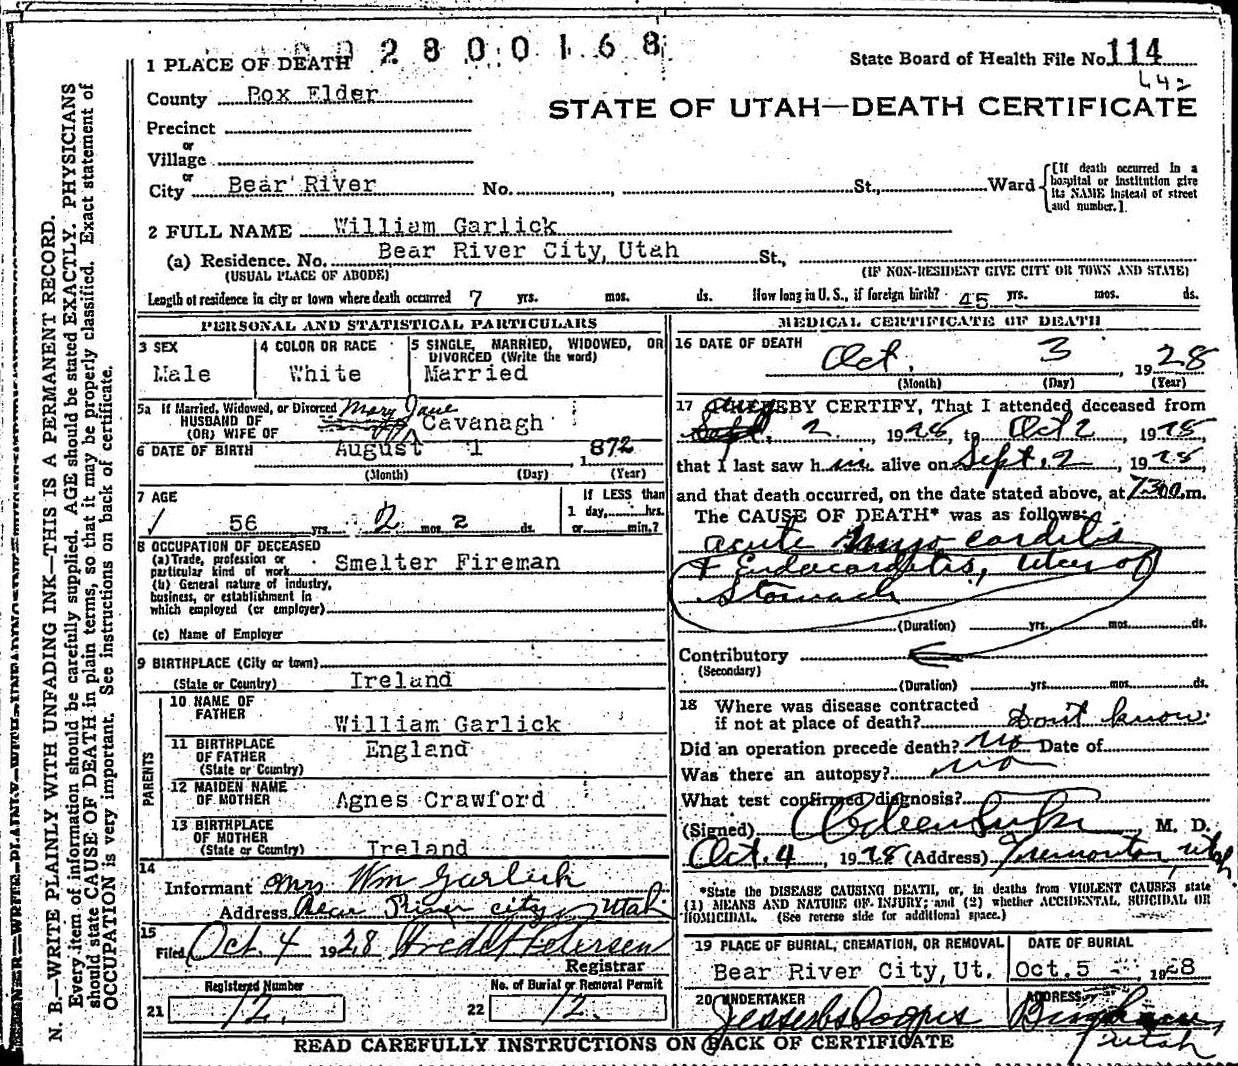 2800168
1 PLACE OF DEATH
State Board of Health File No. 114
442
County Box Elder
STATE OF UTAH—DEATH CERTIFICATE
Precinct
or
Village
or
City Bear River No. , St., Ward
[If death occurred in a hospital or institution give its NAME instead of street and number.]
2 FULL NAME William Garlick
(a) Residence. No. Bear River City, Utah St.,
(USUAL PLACE OF ABODE) (IF NON-RESIDENT GIVE CITY OR TOWN AND STATE)
Length of residence in city or town where death occurred 7 yrs. mos. ds. How long in U. S., if foreign birth? 45 yrs. mos. ds.
PERSONAL AND STATISTICAL PARTICULARS
3 SEX
Male
4 COLOR OR RACE
White
5 SINGLE, MARRIED, WIDOWED, OR DIVORCED (Write the word)
Married
5a If Married, Widowed, or Divorced
HUSBAND OF
(OR) WIFE OF
Mary Jane Cavanagh
6 DATE OF BIRTH August 1 1872
(Month) (Day) (Year)
7 AGE
56 yrs. 2 mos. 2 ds.
If LESS than
1 day, hrs.
or min.?
8 OCCUPATION OF DECEASED
(a) Trade, profession or particular kind of work Smelter Fireman
(b) General nature of industry, business, or establishment in which employed (or employer)
(c) Name of Employer
9 BIRTHPLACE (City or town)
(State or Country) Ireland
PARENTS
10 NAME OF FATHER William Garlick
11 BIRTHPLACE OF FATHER (State or Country) England
12 MAIDEN NAME OF MOTHER Agnes Crawford
13 BIRTHPLACE OF MOTHER (State or Country) Ireland
14
Informant Mrs Wm Garlick
Address Bear River City, Utah
15
Filed Oct. 4 1928
Petersen
Registrar
Registered Number
21 12.
No. of Burial or Removal Permit
22 12.
MEDICAL CERTIFICATE OF DEATH
16 DATE OF DEATH
Oct. 3, 1928
(Month) (Day) (Year)
17 HEREBY CERTIFY, That I attended deceased from
Sept. 2, 1928, to Oct 2, 1928,
that I last saw him alive on Sept. 2, 1928,
and that death occurred, on the date stated above, at 730 m.
The CAUSE OF DEATH* was as follows:
acute Myo carditis
+ Endocarditis, Ulcer of
Stomach
(Duration) yrs. mos. ds.
Contributory
(Secondary)
(Duration) yrs. mos. ds.
18 Where was disease contracted
if not at place of death? Don't know.
Did an operation precede death? No Date of
Was there an autopsy? No
What test confirmed diagnosis?
(Signed) M. D.
Oct. 4, 1928 (Address) Tremonton, Utah
*State the DISEASE CAUSING DEATH, or, in deaths from VIOLENT CAUSES, state
(1) MEANS AND NATURE OF INJURY; and (2) whether ACCIDENTAL, SUICIDAL OR
HOMICIDAL. (See reverse side for additional space.)
19 PLACE OF BURIAL, CREMATION, OR REMOVAL
Bear River City, Ut.
DATE OF BURIAL
Oct. 5 1928
20 UNDERTAKER
ADDRESS
Utah
READ CAREFULLY INSTRUCTIONS ON BACK OF CERTIFICATE
N. B.—WRITE PLAINLY WITH UNFADING INK—THIS IS A PERMANENT RECORD.
Every item of information should be carefully supplied. AGE should be stated EXACTLY. PHYSICIANS
should state CAUSE OF DEATH in plain terms, so that it may be properly classified. Exact statement of
OCCUPATION is very important. See instructions on back of certificate.